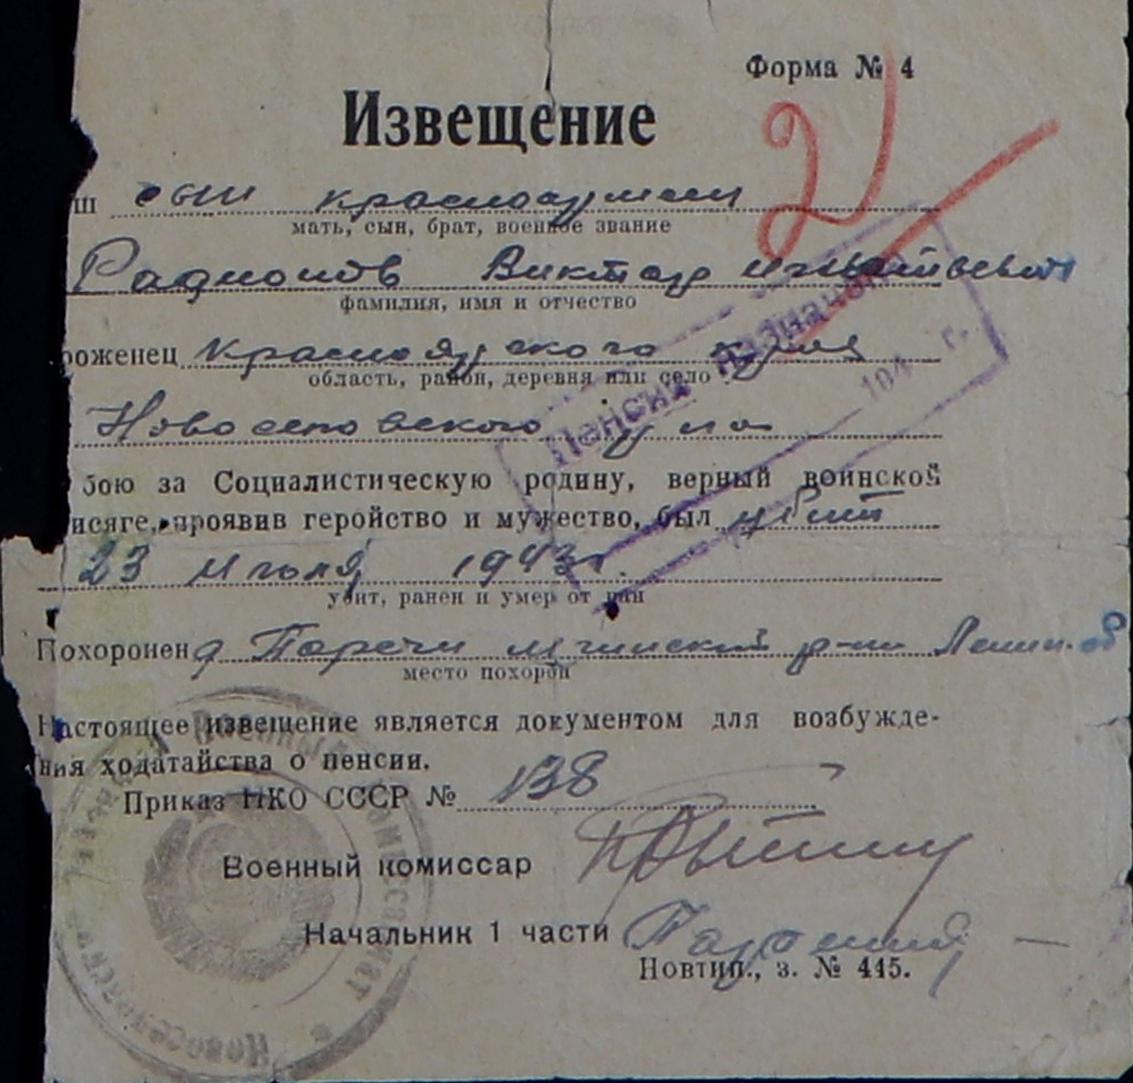 Форма № 4
Извещение
ш сын красноармеец
мать, сын, брат, военное звание
Радионов Виктор Игнатьевич
фамилия, имя и отчество
роженец Красноярского края
область, район, деревня или село
Новоселовского р-на
бою за Социалистическую родину, верный воинской
исяге, проявив геройство и мужество, был убит
23 июля 1943 г.
убит, ранен и умер от ран
Похоронен д Поречи Мгинский р-н Ленин. об
место похорон
Настоящее извещение является документом для возбужде-
ния ходатайства о пенсии.
Приказ НКО СССР № 138
Военный комиссар
Начальник 1 части
Новтип., з. № 445.
Пенсия назначена
194 г.
2